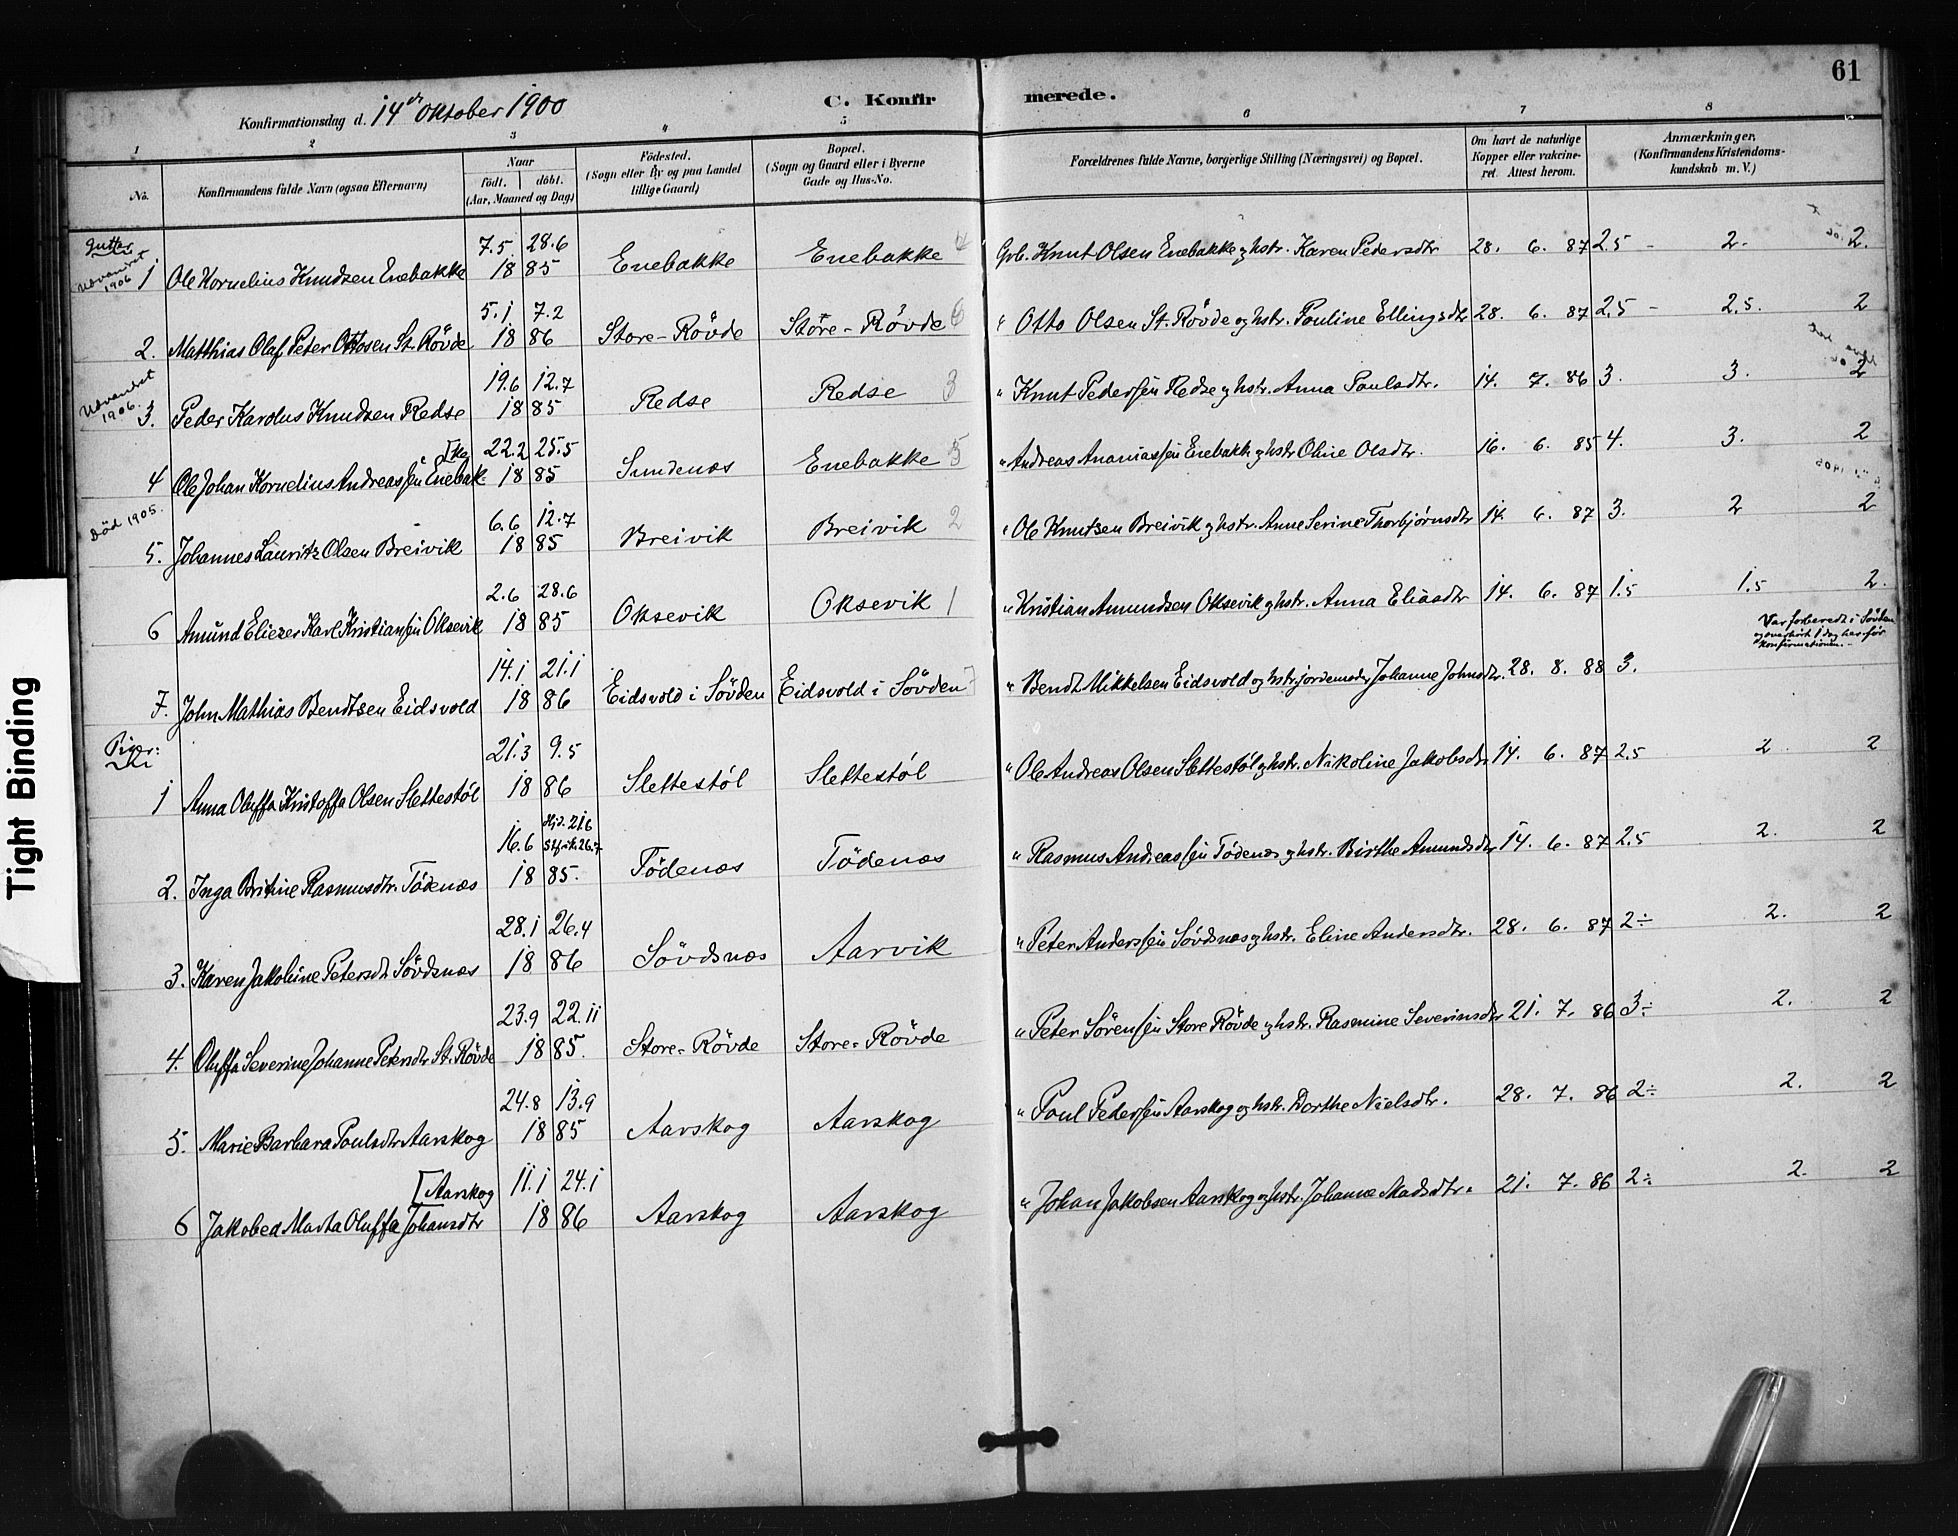 61
Konfirmationsdag d. 14de Oktober 1900
C. Konfirmerede.
1 2 3 4 5 6 7 8
No. Konfirmandens fulde Navn (ogsaa Efternavn) Naar født. døbt. (Aar, Maaned og Dag) Fødested. (Sogn eller By og paa Landet tillige Gaard) Bopæl. (Sogn og Gaard eller i Byerne Gade og Hus-No. Forældrenes fulde Navne, borgerlige Stilling (Næringsvei) og Bopæl. Om havt de naturlige Kopper eller vakcineret. Attest herom. Anmærkninger. (Konfirmandens Kristendomskundskab m. V.)
Gutter
Udvandret 1906
7.5 28.6
1 Ole Kornelius Knudsen Enebakke 18 85 Enebakke Enebakke 4 Grb. Knut Olsen Enebakke og hstr. Karen Pedersdtr 28. 6. 87 2.5 - 2. 2.
5.1 7.2
2. Matthias Olaf Peter Ottosen St. Rövde 18 86 Store-Rövde Store-Rövde 6 " Otto Olsen St. Rövde og hstr. Pouline Ellingsdtr 28. 6. 87 2.5 - 2.5. 2
Udvandret 1906.
19.6 12.7
3. Peder Karolus Knudsen Redse 18 85 Redse Redse 3 " Knut Pedersen Redse og hstr. Anna Poulsdtr. 14. 7. 86 3. 3. 2
[ke 22.2 25.5
4 Ole Johan Kornelius Andreassen Enebak- 18 85 Sundenæs Enebakke 5 " Andreas Ananiassen Enebakk og hstr Oline Olsdtr. 16. 6. 85 4. 3. 2
Død 1905.
6.6 12.7
5. Johannes Lauritz Olsen Breivik 18 85 Breivik Breivik 2 " Ole Knutsen Breivik og hstr. Anne Serine Thorbjørnsdtr 14. 6. 87 3. 2 2
2.6 28.6
6 Amund Eliezer Karl Kristiansen Oksevik 18 85 Oksevik Oksevik 1 " Kristian Amundsen Oksevik og hstr. Anna Eliasdtr 14. 6. 87 1.5 1.5 2.
Var forberedt i Søvden
og overhørt 1 dag her før
konfirmationen.
14.1 21.1
7. John Mathias Bendtsen Eidsvold 18 86 Eidsvold i Sövden Eidsvold i Sövden 7 " Bendt Mikkelsen Eidsvold og hstr. jordemoder Johanne Johnsdtr. 28. 8. 88 3.
Piger:
21.3 9.5
1 Anna Oluffa Kristoffa Olsen Slettestøl 18 86 Slettestøl Slettestøl " Ole Andreas Olsen Slettestøl og hstr. Nikoline Jakobsdtr 14. 6. 87 2.5 2 2
16.6 Hjd. 21.6 Stf. i k. 26.7
2. Inga Britine Rasmusdtr. Tödenæs 18 85. Tödenæs Tödenæs " Rasmus Andreassen Tödenæs og hstr. Birthe Amundsdtr 14. 6. 87 2.5 2. 2
28.1 26.4
3. Karen Jakobine Petersdt. Sövdsnæs 18 86 Sövdsnæs Aarvik " Peter Anderssen Sövdsnæs og hstr. Eline Andersdtr. 28. 6. 87 2÷ 2. 2
23.9 22.11
4. Oluffa Severine Johanne Petersdtr St. Rövde 18 85. Store-Rövde Store-Rövde " Peter Sörenssen Store Rövde og hstr. Rasmine Severinsdtr 21. 7. 86 3÷ 2. 2
24.8 13.9
5. Marie Barbara Poulsdtr Aarskog 18 85 Aarskog Aarskog " Poul Pedersen Aarskog og hstr. Dorthe Nielsdtr. 28. 7. 86 2÷ 2. 2
[Aarskog 11.1 24.1
6 Jakobea Marta Oluffa Johansdtr 18 86 Aarskog Aarskog " Johan Jakobsen Aarskog og hstr. Johanne Madsdtr. 21. 7. 86 2÷ 2. 2
Tight Binding